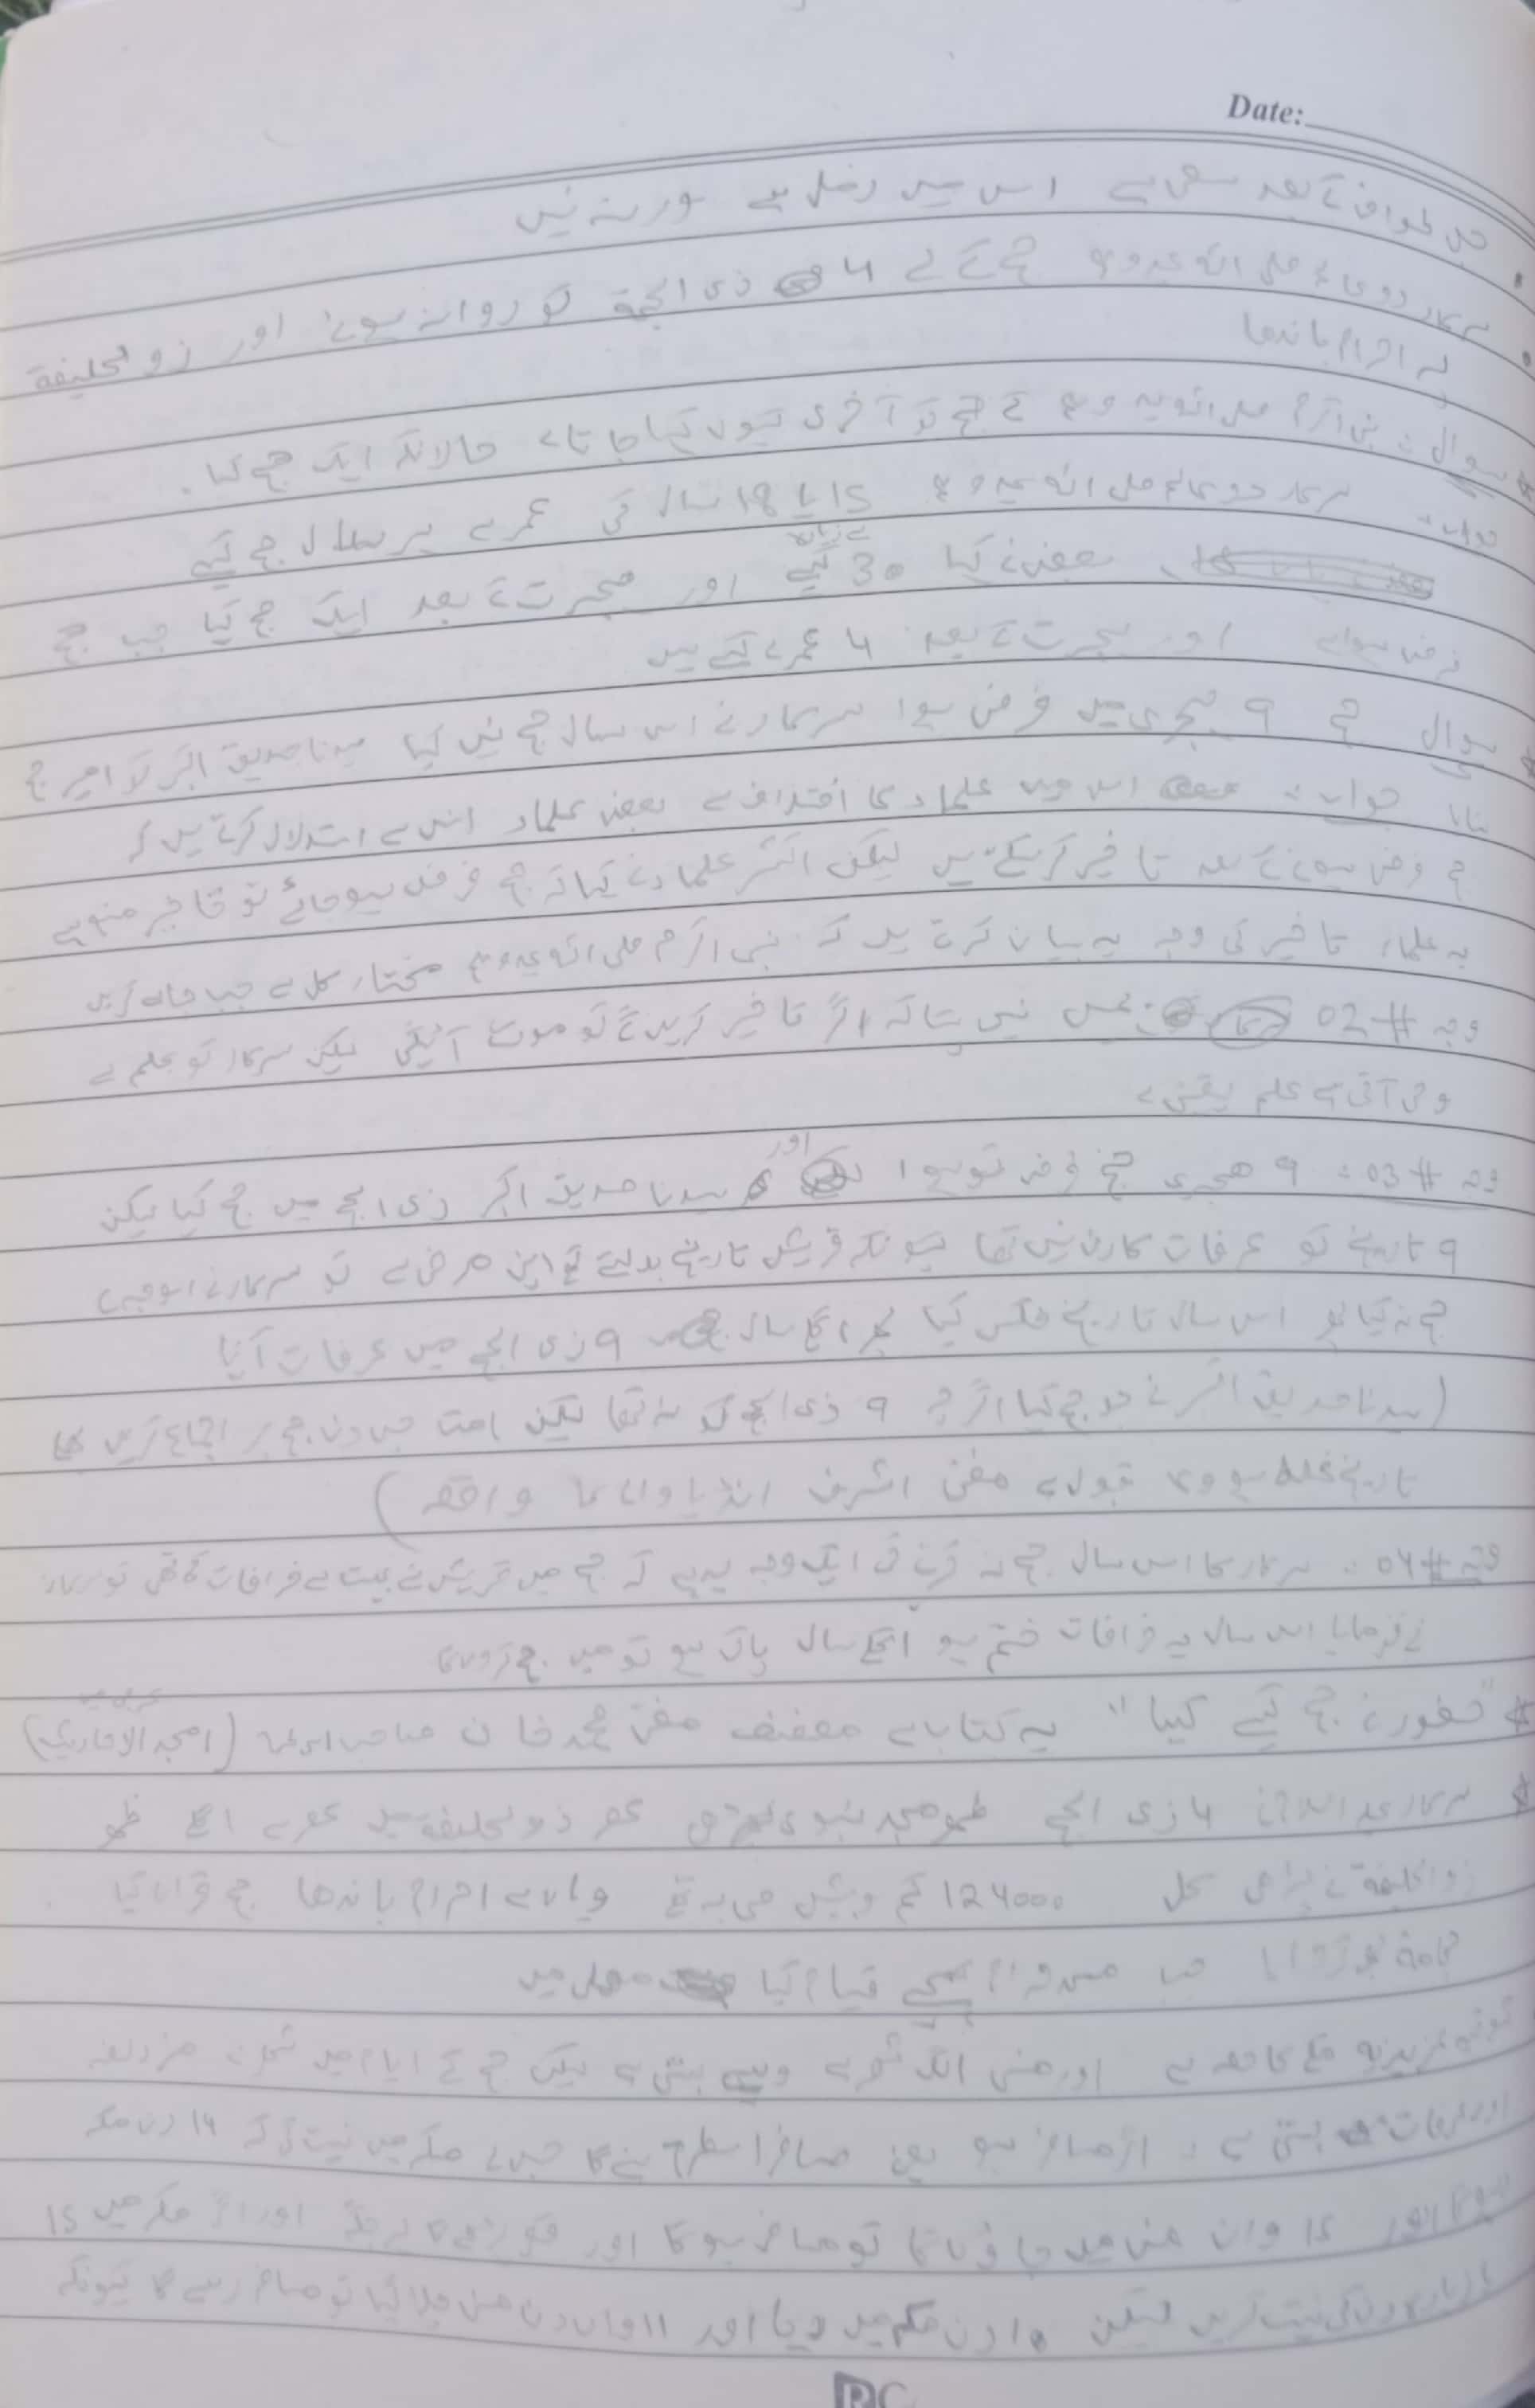 Date:
جس طواف کے بعد سعی ہے اس میں رمل ہے ورنہ نہیں
سرکار دو عالم صلی اللہ علیہ وسلم حج کے لئے 4 ذی الحجۃ کو روانہ ہوئے اور ذوالحلیفۃ
نے احرام باندھا
سوال : نبی اکرم صلی اللہ علیہ وسلم کے حج کو آخری کیوں کہا جاتا ہے حالانکہ ایک حج کیا .
جواب : سرکار دو عالم صلی اللہ علیہ وسلم 15 یا 18 سال کی عمر سے ہر سال حج کیے
بعض نے کہا 30 سے زیادہ کیے اور ہجرت کے بعد ایک حج کیا جب حج
فرض ہوا ہے اور ہجرت کے بعد 4 عمرے کیے ہیں
سوال حج 9 ہجری میں فرض ہوا سرکار نے اس سال حج نہیں کیا سیدنا صدیق اکبر کو امیر حج
بنایا جواب : اس میں علماء کا اختلاف ہے بعض علماء اس سے استدلال کرتے ہیں کہ
حج فرض ہونے کے بعد تاخیر کر سکتے ہیں لیکن اکثر علماء نے کہا کہ حج فرض ہو جائے تو تاخیر منع ہے
یہ علماء تاخیر کی وجہ یہ بیان کرتے ہیں کہ نبی اکرم صلی اللہ علیہ وسلم مختار کل ہے جب چاہے کریں
وجہ #02 ہمیں نہیں پتا کہ اگر تاخیر کریں گے تو موت آئیگی لیکن سرکار کو علم ہے
وحی آتی ہے علم یقینی ہے
وجہ #03 : 9 ھجری حج فرض تو ہوا اور سیدنا صدیق اکبر ذی الحجہ میں حج کیا لیکن
9 تاریخ کو عرفات کا دن نہیں تھا کیونکہ قریش تاریخ بدلتے تھے اپنی مرضی سے تو سرکار نے اسوجہ سے
حج نہ کیا پھر اس سال تاریخ فکس کیا پھر اگلے سال 9 ذی الحجہ میں عرفات آیا
(سیدنا صدیق اکبر نے جو حج کیا اگرچہ 9 ذی الحجہ کو نہ تھا لیکن امت جس دن حج پر اجماع کریں گا
تاریخ غلط ہو وہ قبول ہے مفتی اشرف انڈیا والے کا واقعہ)
وجہ #04 : سرکار کا اس سال حج نہ کرنے کی ایک وجہ یہ ہے کہ حج میں قریش نے بہت سے خرافات کئے تھے تو سرکار
نے فرمایا اس سال یہ خرافات ختم ہو اگلے سال پاک ہو تو میں حج کروں گا
"حضور نے حج کیسے کیا" یہ کتاب ہے مصنف مفتی محمد خان صاحب
سرکار علیہ السلام نے 4 ذی الحجہ ظہر مسجد نبوی پڑھی عصر ذوالحلیفۃ میں
ذوالحلیفۃ نے پڑھی کل 124000 کم و بیش صحابہ تھے وہاں سے احرام باندھا حج قران کیا
قیام کیا میں
عزیزیہ مکہ کا حصہ ہے اور منی الگ شہر ہے ویسے بستی ہے لیکن حج کے ایام میں شہر ہے مزدلفہ
اور عرفات بستی ہے : اگر مسافر ہو یعنی مسافر اسطرح بنے گا جب مکہ میں نیت کی کہ 14 دن مکہ
15 واں منی میں جاؤں گا تو مسافر ہو گا اور اور اگر مکہ میں 15
دن کی نیت کریں لیکن 10 دن مکہ میں رہا اور 11 واں دن منی چلا گیا تو مسافر رہے گا کیونکہ